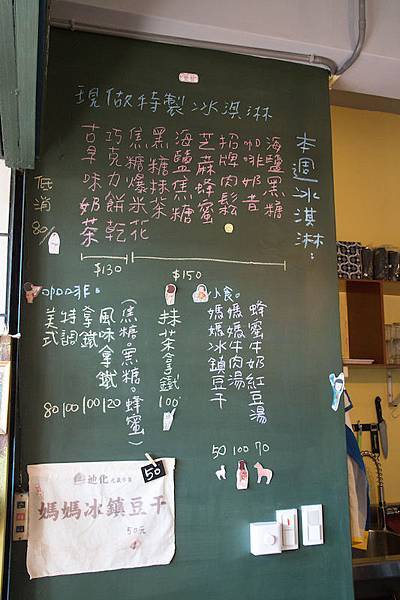 現做特製冰淇淋
本週冰淇淋:
海鹽黑糖
咖啡奶昔
招牌肉鬆
芝麻蜂蜜
海鹽焦糖
黑糖抹茶
焦糖爆米花
巧克力餅乾
古早味奶茶
低消80/
$130
$150
咖啡。
美式 80
特調 100
拿鐵 100
風味拿鐵 120
(焦糖。黑糖。蜂蜜)
抹茶拿鐵 100
小食。
媽媽冰鎮豆干 50
媽媽牛肉湯 100
蜂蜜牛奶紅豆湯 70
50
迪化
媽媽冰鎮豆干
50元